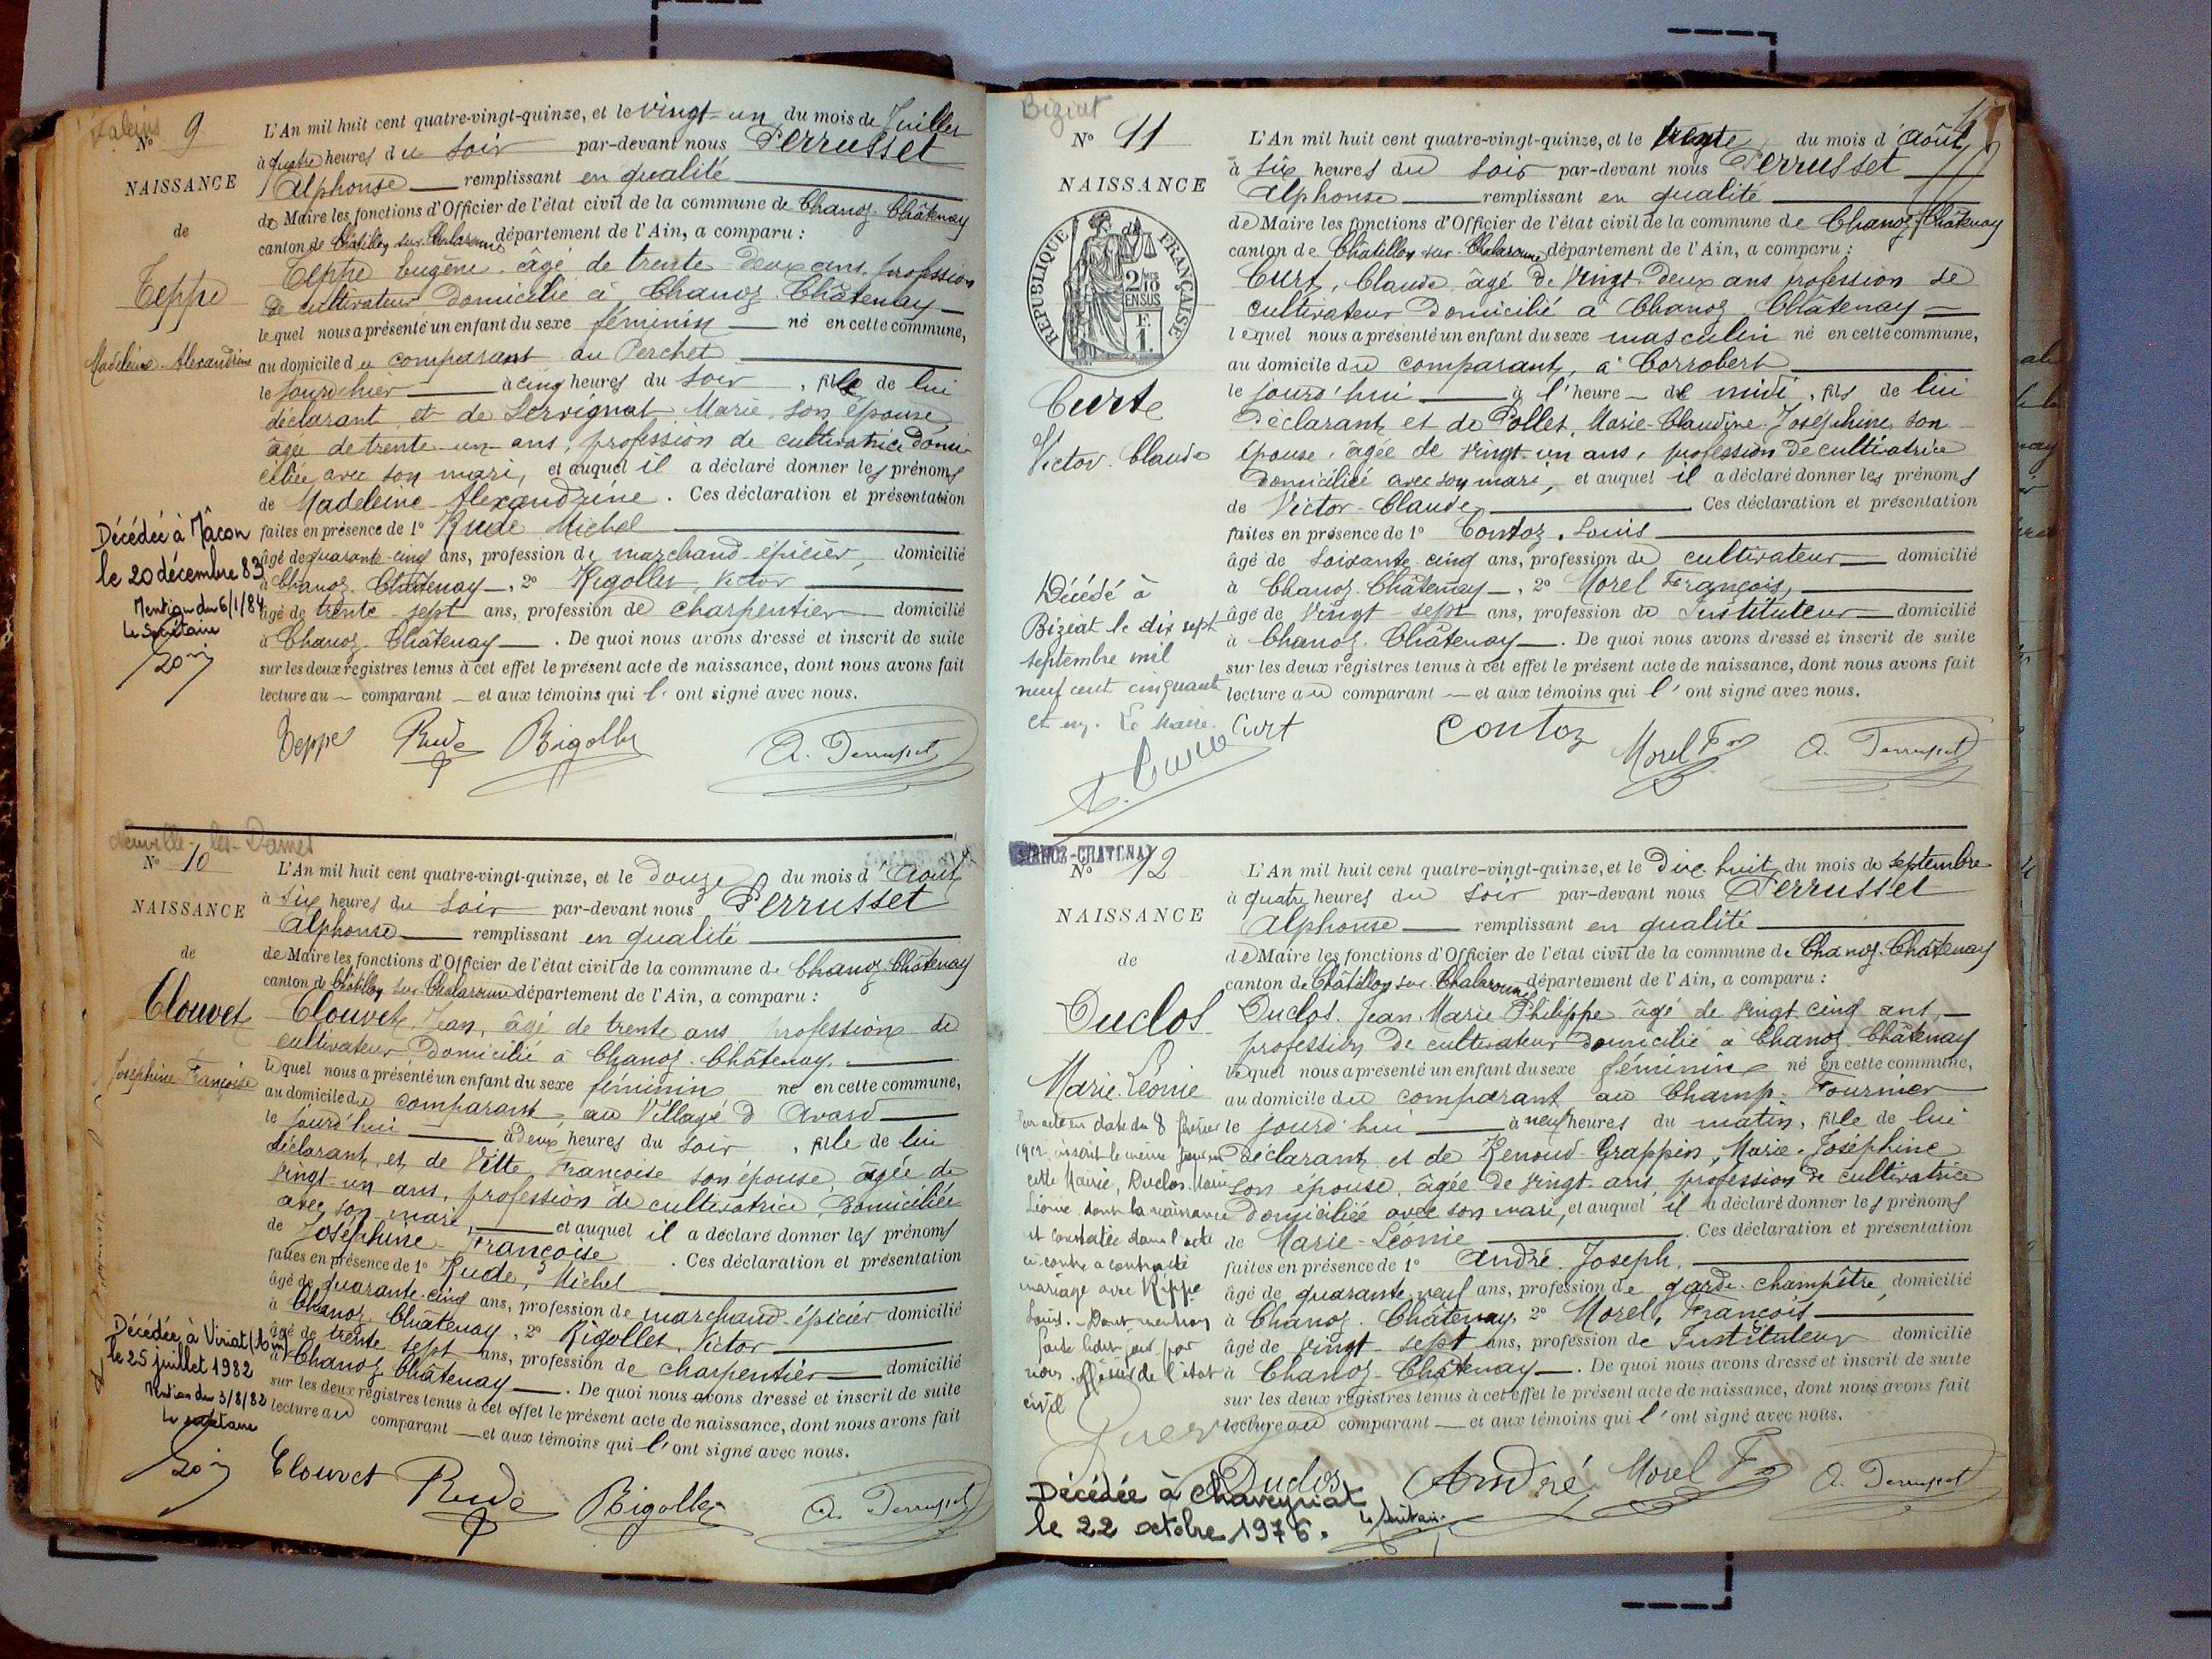 Nº 9
NAISSANCE
de
Teppe
Madeleine-Alexandrine
L'An mil huit cent quatre-vingt-quinze, et le vingt-un du mois de Juillet
à quatre heures du soir par-devant nous Perrusset
Alphonse remplissant en qualité
de Maire les fonctions d'Officier de l'état civil de la commune de Chanoz-Châtenay
canton de Châtillon sur Chalaronne département de l'Ain, a comparu :
Teppe Eugène, âgé de trente-deux ans, profession
de cultivateur domicilié à Chanoz-Châtenay
lequel nous a présenté un enfant du sexe féminin né en cette commune,
au domicile du comparant au Perchet
le jourd'hier à cinq heures du soir, fille de lui
déclarant et de Servignat Marie, son épouse,
âgée de trente-un ans, profession de cultivatrice domi-
ciliée avec son mari, et auquel il a déclaré donner les prénoms
de Madeleine-Alexandrine. Ces déclaration et présentation
faites en présence de 1º Rude Michel
âgé de quarante-cinq ans, profession de marchand-épicier, domicilié
à Chanoz-Châtenay, 2º Rigollet Victor
âgé de trente-sept ans, profession de charpentier domicilié
à Chanoz-Châtenay. De quoi nous avons dressé et inscrit de suite
sur les deux registres tenus à cet effet le présent acte de naissance, dont nous avons fait
lecture au comparant et aux témoins qui l'ont signé avec nous.
Décédée à Mâcon
le 20 décembre 83
Mention du 6/1/84
Le Secrétaire
Teppe Rude Rigollet A. Perrusset
Neuville-les-Dames
Nº 10
NAISSANCE
de
Clouvet
Joséphine-Françoise
L'An mil huit cent quatre-vingt-quinze, et le douze du mois d'Août
à six heures du soir par-devant nous Perrusset
Alphonse remplissant en qualité
de Maire les fonctions d'Officier de l'état civil de la commune de Chanoz-Châtenay
canton de Châtillon sur Chalaronne département de l'Ain, a comparu :
Clouvet Jean, âgé de trente ans, profession de
cultivateur domicilié à Chanoz-Châtenay.
lequel nous a présenté un enfant du sexe féminin né en cette commune,
au domicile du comparant, au Village d'Avard
le jourd'hui à deux heures du soir, fille de lui
déclarant et de Vitte Françoise son épouse, âgée de
vingt-un ans, profession de cultivatrice, domiciliée
avec son mari, et auquel il a déclaré donner les prénoms
de Joséphine-Françoise. Ces déclaration et présentation
faites en présence de 1º Rude, Michel
âgé de quarante-cinq ans, profession de marchand-épicier domicilié
à Chanoz-Châtenay, 2º Rigollet, Victor
âgé de trente sept ans, profession de charpentier domicilié
à Chanoz-Châtenay. De quoi nous avons dressé et inscrit de suite
sur les deux registres tenus à cet effet le présent acte de naissance, dont nous avons fait
lecture au comparant et aux témoins qui l'ont signé avec nous.
Décédée à Viriat (Ain)
le 25 juillet 1982
Mention du 3/8/82
Le secrétaire
Clouvet Rude Rigollet A. Perrusset
Biziat
Nº 11
NAISSANCE
RÉPUBLIQUE FRANÇAISE
2/10 EN SUS
F. 1.
Curt
Victor-Claude
L'An mil huit cent quatre-vingt-quinze, et le trente du mois d'Août
à six heures du soir par-devant nous Perrusset
Alphonse remplissant en qualité
de Maire les fonctions d'Officier de l'état civil de la commune de Chanoz-Châtenay
canton de Châtillon sur Chalaronne département de l'Ain, a comparu :
Curt, Claude, âgé de vingt-deux ans profession de
cultivateur domicilié à Chanoz-Châtenay
lequel nous a présenté un enfant du sexe masculin né en cette commune,
au domicile du comparant, à Corrobert
le jourd'hui à l'heure de midi, fils de lui
déclarant et de Pollet, Marie-Claudine-Joséphine, son
épouse, âgée de vingt-un ans, profession de cultivatrice
domiciliée avec son mari, et auquel il a déclaré donner les prénoms
de Victor-Claude. Ces déclaration et présentation
faites en présence de 1º Contoz, Louis
âgé de soixante-cinq ans, profession de cultivateur domicilié
à Chanoz-Châtenay, 2º Morel François,
âgé de vingt-sept ans, profession de Instituteur domicilié
à Chanoz-Châtenay. De quoi nous avons dressé et inscrit de suite
sur les deux registres tenus à cet effet le présent acte de naissance, dont nous avons fait
lecture au comparant et aux témoins qui l'ont signé avec nous.
Décédé à
Biziat le dix sept
septembre mil
neuf cent cinquante
et un. Le Maire.
Curt Contoz Morel Fs A. Perrusset
CHANOZ-CHATENAY
Nº 12
NAISSANCE
de
Duclos
Marie-Léonie
L'An mil huit cent quatre-vingt-quinze, et le dix-huit du mois de septembre
à quatre heures du soir par-devant nous Perrusset
Alphonse remplissant en qualité
de Maire les fonctions d'Officier de l'état civil de la commune de Chanoz-Châtenay
canton de Châtillon sur Chalaronne département de l'Ain, a comparu :
Duclos Jean Marie Philippe âgé de vingt cinq ans,
profession de cultivateur domicilié à Chanoz-Châtenay
lequel nous a présenté un enfant du sexe féminin né en cette commune,
au domicile du comparant au Champ-Fournier
le jourd'hui à neuf heures du matin, fille de lui
déclarant et de Renoud-Grappin, Marie-Joséphine
son épouse, âgée de vingt ans, profession de cultivatrice
domiciliée avec son mari, et auquel il a déclaré donner les prénoms
de Marie-Léonie. Ces déclaration et présentation
faites en présence de 1º André Joseph,
âgé de quarante-neuf ans, profession de garde-champêtre, domicilié
à Chanoz-Châtenay, 2º Morel, François
âgé de vingt-sept ans, profession de Instituteur domicilié
à Chanoz-Châtenay. De quoi nous avons dressé et inscrit de suite
sur les deux registres tenus à cet effet le présent acte de naissance, dont nous avons fait
lecture au comparant et aux témoins qui l'ont signé avec nous.
Par acte en date du 8 février
1912, inscrit le même jour en
cette Mairie, Duclos Marie
Léonie dont la naissance
est constatée dans l'acte
ci-contre a contracté
mariage avec Rippe
Louis. Dont mention
faite ledit jour par
nous officier de l'état
civil
Duclos André Morel Fs A. Perrusset
Décédée à Chaveyriat
le 22 octobre 1976.